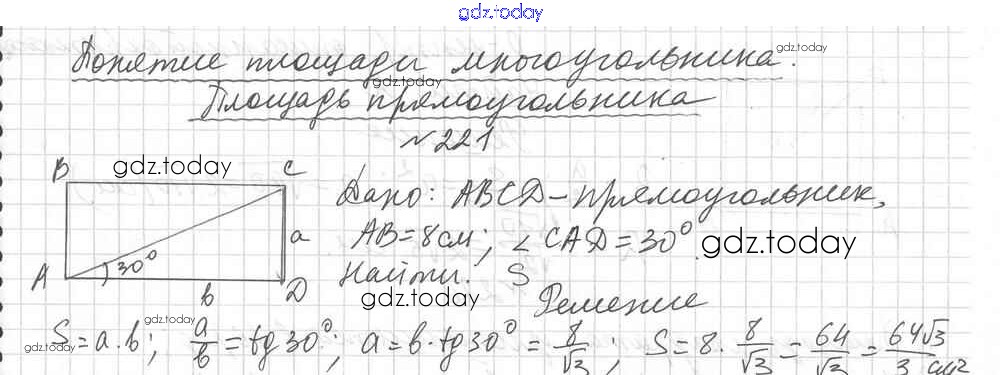 gdz.today
Понятие площади многоугольника.
gdz.today
gdz.today
Площадь прямоугольника
№221
B gdz.today C
Дано: ABCD – прямоугольник,
a AB = 8 см; ∠ CAD = 30° gdz.today
A 30° b D
Найти: S
gdz.today
Решение
gdz.today gdz.today
S = a·b; a/b = tg 30°; a = b·tg 30° = 8/√3; S = 8·8/√3 = 64/√3 = 64√3/3 см²
gdz.today